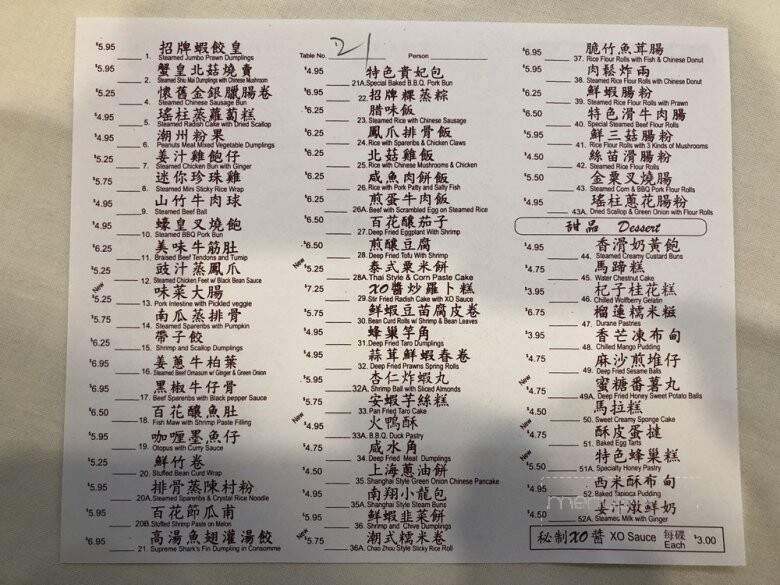 $5.95 招牌蝦餃皇
1. Steamed Jumbo Prawn Dumplings
$5.95 蟹皇北菇燒賣
2. Steamed Shiu Mai Dumplings with Chinese Mushroom
$5.25 懷舊金銀臘腸卷
4. Steamed Chinese Sausage Bun
$4.95 瑤柱蒸蘿蔔糕
5. Steamed Radish Cake with Dried Scallop
$4.95 潮州粉果
6. Peanuts Meat Mixed Vegetable Dumplings
$5.25 姜汁雞飽仔
7. Steamed Chicken Bun with Ginger
$5.75 迷你珍珠雞
8. Steamed Mini Sticky Rice Wrap
$4.95 山竹牛肉球
9. Steamed Beef Ball
$4.95 蠔皇叉燒飽
10. Steamed BBQ Pork Bun
$6.25 美味牛筋肚
11. Braised Beef Tendons and Turnip
$5.25 豉汁蒸鳳爪
12. Steamed Chicken Feet w/ Black Bean Sauce
New $5.25 味菜大腸
13. Pork Intestine with Pickled veggie
$5.75 南瓜蒸排骨
14. Steamed Spareribs with Pumpkin
$6.25 帶子餃
15. Shrimp and Scallop Dumplings
$6.95 姜蔥牛柏葉
16. Steamed Beef Omasum w/ Ginger & Green Onion
$6.95 黑椒牛仔骨
17. Beef Spareribs with Black pepper Sauce
$6.50 百花釀魚肚
18. Fish Maw with Shrimp Paste Filling
$5.95 咖喱墨魚仔
19. Otopus with Curry Sauce
$5.25 鮮竹卷
20. Stuffed Bean Curd Wrap
$5.95 排骨蒸陳村粉
20A. Steamed Spareribs & Crystal Rice Noodle
$5.95 百花節瓜甫
20B. Stuffed Shrimp Paste on Melon
$6.95 高湯魚翅灌湯餃
21. Supreme Shark's Fin Dumpling in Consomme
Table No. 21 Person
$4.95 特色貴妃包
21A. Special Baked B.B.Q. Pork Bun
$6.95 22. 招牌粿蒸粽
$6.25 腊味飯
23. Steamed Rice with Chinese Sausage
$6.25 鳳爪排骨飯
24. Rice with Spareribs & Chicken Claws
$6.25 北菇雞飯
25. Rice with Chinese Mushrooms & Chicken
$6.25 咸魚肉餅飯
26. Rice with Pork Patty and Salty Fish
$6.25 煎蛋牛肉飯
26A. Beef with Scrambled Egg on Steamed Rice
$6.50 百花釀茄子
27. Deep Fried Eggplant With Shrimp
$6.50 煎釀豆腐
28. Deep Fried Tofu With Shrimp
New $5.25 泰式粟米餅
28A. Thai Style & Corn Paste Cake
$7.25 XO醬炒羅卜糕
29. Stir Fried Radish Cake with XO Sauce
$5.75 鮮蝦豆苗腐皮卷
30. Bean Curd Rolls w/ Shrimp & Bean Leaves
$4.95 蜂巢芋角
31. Deep Fried Taro Dumplings
$4.95 蒜茸鮮蝦春卷
32. Deep Fried Prawns Spring Rolls
$5.95 杏仁炸蝦丸
32A. Shrimp Ball with Sliced Almonds
$5.75 安蝦芋絲糕
33. Pan Fried Taro Cake
New $4.95 火鴨酥
33A. B.B.Q. Duck Pastry
$4.75 咸水角
34. Deep Fried Meat Dumplings
$4.50 上海蔥油餅
35. Shanghai Style Green Onion Chinese Pancake
$4.95 南翔小龍包
35A. Shanghai Style Steam Buns
$5.95 鮮蝦韭菜餅
36. Shrimp and Chive Dumplings
New $5.75 潮式糯米卷
36A. Chao Zhou Style Sticky Rice Roll
$6.95 脆竹魚茸腸
37. Rice Flour Rolls with Fish & Chinese Donut
$5.95 肉鬆炸兩
38. Steamed Rice Flour Rolls with Chinese Donut
$6.25 鮮蝦腸粉
39. Steamed Rice Flour Rolls with Prawn
$6.50 特色滑牛肉腸
40. Special Steamed Beef Flour Rolls
$5.95 鮮三菇腸粉
41. Rice Flour Rolls with 3 Kinds of Mushrooms
$4.50 絲苗滑腸粉
42. Steamed Rice Flour Rolls
$5.50 金粟叉燒腸
43. Steamed Corn & BBQ Pork Flour Rolls
$4.95 瑤柱蔥花腸粉
43A. Dried Scallop & Green Onion with Flour Rolls
甜品 Dessert
$4.95 香滑奶黃飽
44. Steamed Creamy Custard Buns
$4.75 馬蹄糕
45. Water Chestnut Cake
$3.95 杞子桂花糕
46. Chilled Wolfberry Gelatin
$6.75 榴蓮糯米糍
47. Durane Pastries
$3.95 香芒凍布甸
48. Chilled Mango Pudding
$4.75 麻沙煎堆仔
49. Deep Fried Sesame Balls
New $4.75 蜜糖番薯丸
49A. Deep Fried Honey Sweet Potato Balls
$4.50 馬拉糕
50. Sweet Creamy Sponge Cake
New $4.75 酥皮蛋撻
51. Baked Egg Tarts
New $5.50 特色蜂巢糕
51A. Specialty Honey Pastry
$4.95 西米酥布甸
52. Baked Tapioca Pudding
New $4.50 姜汁燉鮮奶
52A. Steamed Milk with Ginger
秘制XO醬 XO Sauce 每碟 Each $3.00